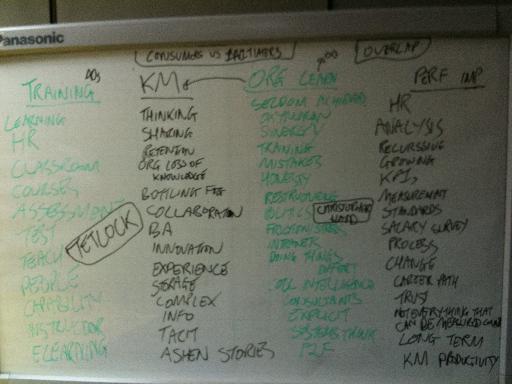 Panasonic
CONSUMERS VS PARTNERS
OVERLAP
TRAINING
LEARNING
HR
CLASSROOM
COURSES
ASSESSMENT
TEST
TEACH
PEOPLE
CAPABILITY
INSTRUCTOR
ELEARNING
TETLOCK
KM
THINKING
SHARING
RETENTION
ORG LOSS OF
KNOWLEDGE
BOTTLING
COLLABORATION
BA
INNOVATION
EXPERIENCE
STORAGE
COMPLEX
INFO
TACIT
ASHEN STORIES
ORG LEARN
SELDOM ACHIEVED
OXYMORON
SYNERGY
TRAINING
MISTAKES
HONESTY
RESTRUCTURING
POLITICS
CHRISTOPHER
WARD
INTRANETS
DOING THINGS
DIFFERENT
COLL INTELLIGENCE
CONSULTANTS
EXPLICIT
SYSTEMS THINK
PERF IMP
HR
ANALYSIS
RECURSSIVE
GROWING
KPIs
MEASUREMENT
STANDARDS
SALARY SURVEY
PROCESS
CHANGE
CAREER PATH
TRUST
NOT EVERYTHING THAT
CAN BE MEASURED
LONG TERM
KM PRODUCTIVITY